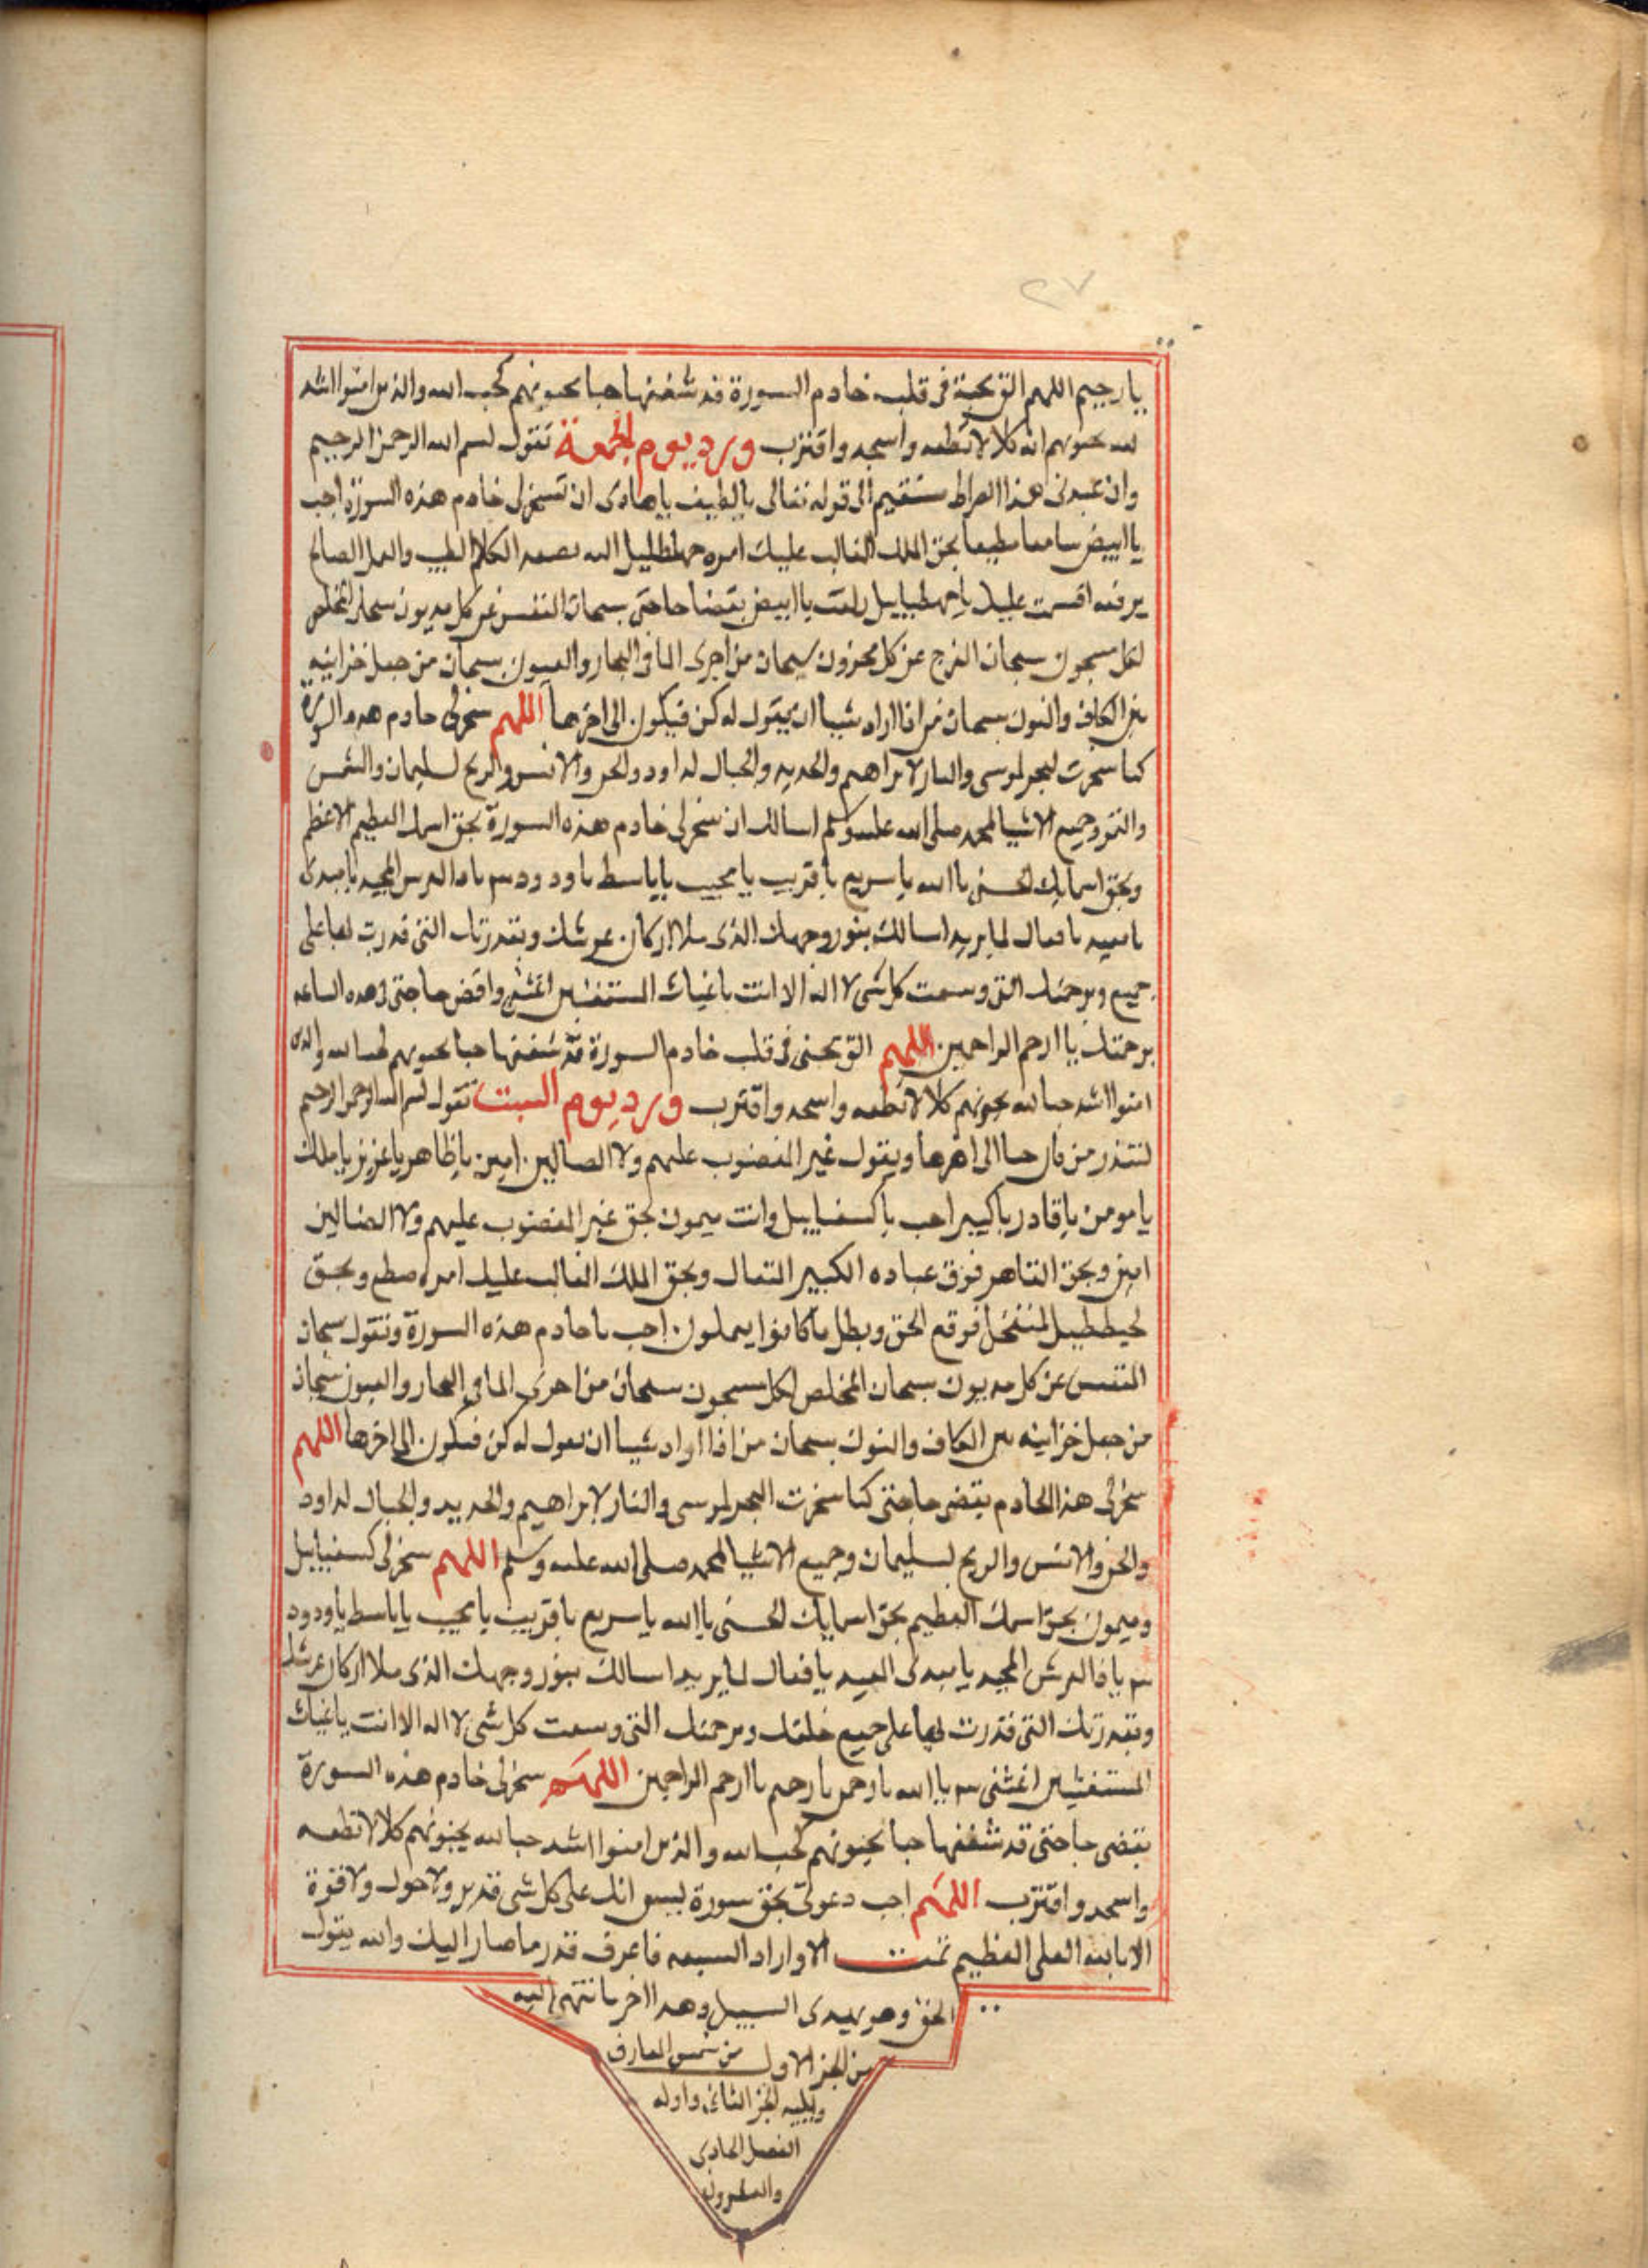 ٢٧
يا رحيم اللهم الق محبتى فى قلب خادم السورة قد شغفها حبا يحبونهم كحب الله والذين امنوا اشد
لله يحبونهم انه كلا لا تطعه واسجد واقترب ورد يوم الجمعة تقول بسم الله الرحمن الرحيم
وان اعبدونى هذا صراط مستقيم الى قوله تعالى يا لطيف يا هادى ان تسخر لى خادم هذه السورة اجب
يا ابيض سامعا مطيعا بحق الملك الغالب عليك امره اليه يصعد الكلم الطيب والعمل الصالح
يرفعه اقسمت عليك وانت يا ابيض بقضا حاجتى سبحان المنفس عن كل مديون سبحان المخلص
لكل مسجون سبحان المفرج عن كل محزون سبحان من اجرى الما فى البحار والعيون سبحان من جعل خزاينه
بين الكاف والنون سبحان من اذا اراد شيا ان يقول له كن فيكون الى اخرها اللهم سخر لى خادم هذه السورة
كما سخرت البحر لموسى والنار لابراهيم والحديد والجبال لداود والجن والانس والريح لسليمان والشمس
والقمر وجميع الاشيا لمحمد صلى الله عليه وسلم اسالك ان تسخر لى خادم هذه السورة بحق اسمك العظيم الاعظم
وبحق اسمايك الحسنى يا الله يا سريع يا قريب يا مجيب يا باسط يا ودود يا ذا العرش المجيد يا مبدى
يا معيد يا فعال لما يريد اسالك بنور وجهك الذى ملا اركان عرشك وبقدرتك التى قدرت بها على
جميع وبرحمتك التى وسعت كل شى لا اله الا انت يا غياث المستغيثين اغثنى واقض حاجتى فى هذه الساعه
برحمتك يا ارحم الراحمين اللهم الق محبتى فى قلب خادم السورة قد شغفها حبا يحبونهم كحب الله والذين
امنوا اشد حبا لله يحبونهم كلا لا تطعه واسجد واقترب ورد يوم السبت تقول بسم الله الرحمن الرحيم
لتنذر من كان حيا الى اخرها ويقول غير المغضوب عليهم ولا الضالين امين يا ظاهر يا عزيز يا ملك
يا مومن يا قادر يا كبير اجب يا كسفياييل وانت ميمون بحق غير المغضوب عليهم ولا الضالين
امين وبحق القاهر فوق عباده الكبير المتعال وبحق الملك الغالب عليك امره وبحق
فوقع الحق وبطل ما كانوا يعملون اجب يا خادم هذه السورة وتقول سبحان
المنفس عن كل مديون سبحان المخلص لكل مسجون سبحان من اجرى الما فى البحار والعيون سبحان
من جعل خزاينه بين الكاف والنون سبحان من اذا اراد شيا ان يقول له كن فيكون الى اخرها اللهم
سخر لى هذا الخادم بقضى حاجتى كما سخرت البحر لموسى والنار لابراهيم والحديد والجبال لداود
والجن والانس والريح لسليمان وجميع الاشيا لمحمد صلى الله عليه وسلم اللهم سخر لى كسفياييل
وميمون بحق اسمك العظيم بحق اسمايك الحسنى يا الله يا سريع يا قريب يا مجيب يا باسط يا ودود
يا ذا العرش المجيد يا مبدى المعيد يا فعال لما يريد اسالك بنور وجهك الذى ملا اركان عرشك
وبقدرتك التى قدرت بها على جميع خلقك وبرحمتك التى وسعت كل شى لا اله الا انت يا غياث
المستغيثين اغثنى يا الله يا رحمن يا رحيم يا ارحم الراحمين اللهم سخر لى خادم هذه السورة
بقضى حاجتى قد شغفها حبا يحبونهم كحب الله والذين امنوا اشد حبا لله يحبونهم كلا لا تطعه
واسجد واقترب اللهم اجب دعوتى بحق سورة يس انك على كل شى قدير ولا حول ولا قوة
الا بالله العلى العظيم تمت الاوراد السبعه فاعرف قدر ما صار اليك والله يقول
الحق وهو يهدى السبيل وهذا اخر ما انتهى اليه
من الجز الاول من شمس المعارف
ويليه الجز الثانى واوله
الفصل الحادى
والعشرون